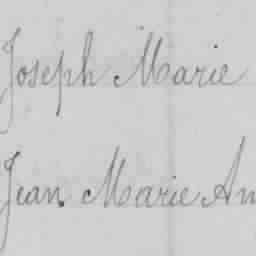 Joseph Marie
Jean Marie An